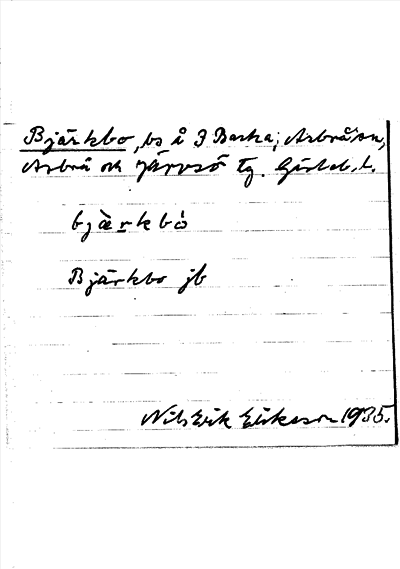 Bjärkbo, bs å 3 Barka; Arbrå sn,
Arbrå och Järvsö tg. Gävleb. l.
bjä̀rkbò
Bjärkbo jb
Nils Erik Eriksson 1935.